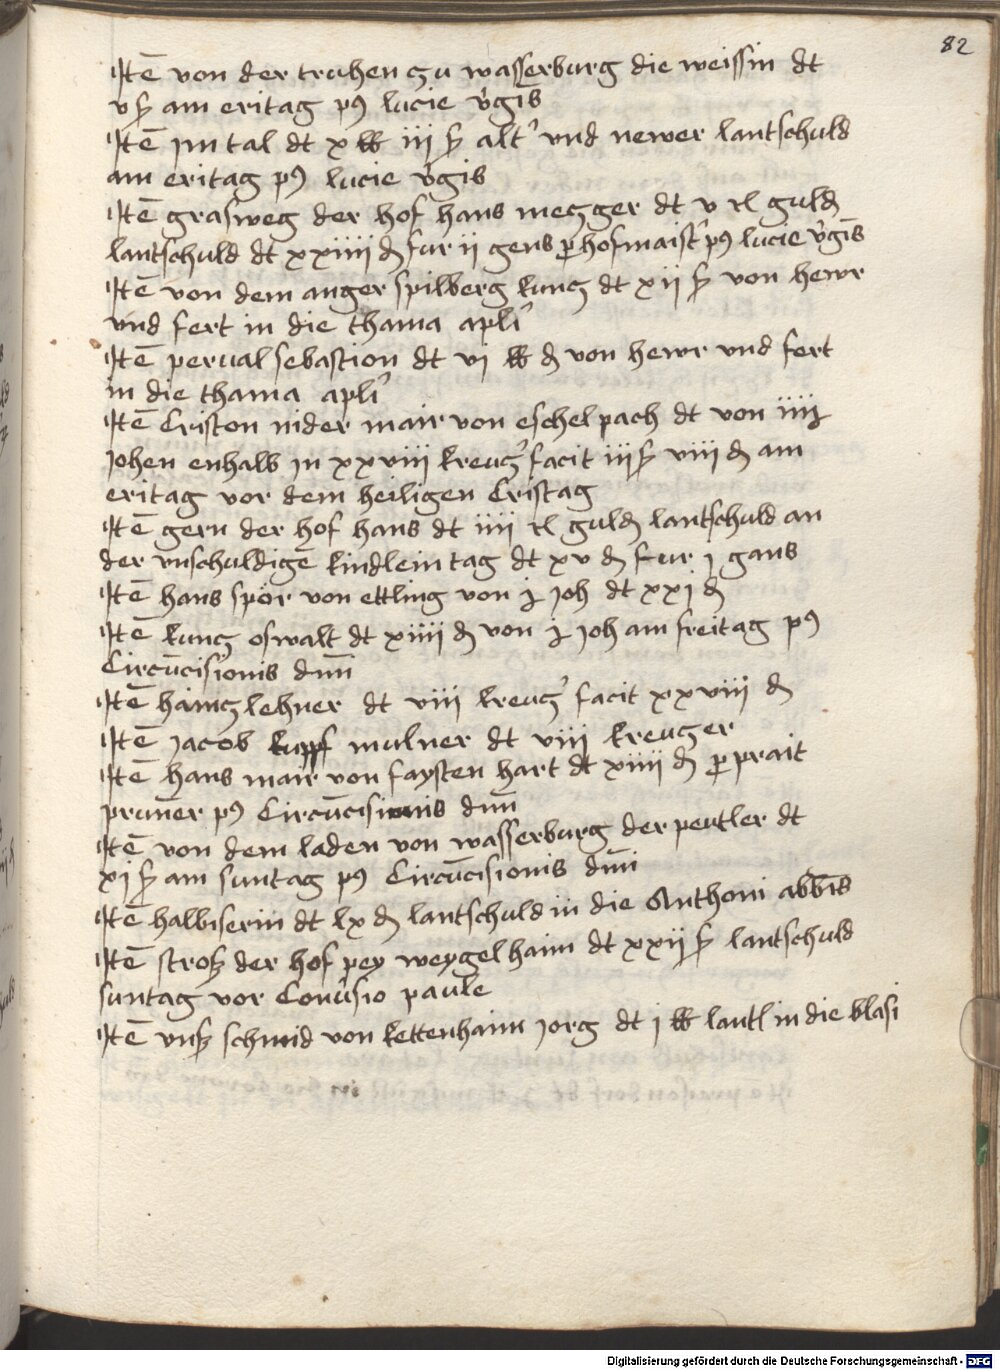 82
Itē von der truhen zu wasserburg die weissin dt
v ß am eritag pꝰ lucie v̓gīs
Itē im tal dt x lb iii ß alt̓ vnd newer lantschuld
am eritag pꝰ lucie v̓gis
Itē grasweg der hof hans mezger dt v rl guld
lantschuld dt xxiiii ₰ fur ii gens ꝑ hofmaist̓ pꝰ lucie v̓gīs
Itē von dem anger spilberg kunz dt xii ß von hewr
vnd fert in die thama apl̓i
Itē perual sebastion dt vi lb ₰ von hewr vnd fert
in die thama apl̓i
Itē Criston nider mair von eschelpach dt von iiii
johen enhalb in xxviii kreuz̓ facit iii ß viii ₰ am
eritag vor dem heiligen Cristag
Itē gern der hof hans dt iiii rl guld lantschuld an
der vnschuldigē kindlein tag dt xv ₰ fur j gans
Itē hans spör von ettling von j joh dt xxj ₰
Itē kunz oswalt dt xiiii ₰ von j joh am freitag pꝰ
Circūcisionis dnī
Itē hainz lehner dt viii kreuz̓ facit xxviii ₰
Itē jacob kupf mulner dt viii kreuzer
Itē hans mair von faysten hart dt xiiii ₰ ꝑ prait
prun̄er pꝰ Circūcisionis dnī
Itē von dem laden von wasserburg der peutler dt
xj ß am suntag pꝰ Circūcisionis dnī
Itē halbiserin dt lx ₰ lantschuld in die Anthoni abb̄is
Itē stroß der hof pey weygelhaim dt xxij ß lantschuld
suntag vor Conu̓sio paule
Itē vnß schmid von kettenhaim jorg dt j lb lantl in die blasi
Digitalisierung gefördert durch die Deutsche Forschungsgemeinschaft - DFG